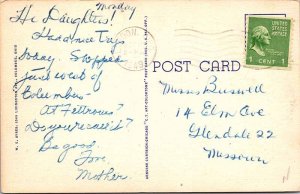 Monday
Hi Daughters!
Had a nice Trip
today. Stopped
just west of
Columbus -
At Feltrows!
Do you recall it?
Be good.
Love,
Mother.
POST CARD
UNITED STATES
POSTAGE
1 CENT 1
Misses Buswell
14 Elm Ave
Glendale 22
Missouri